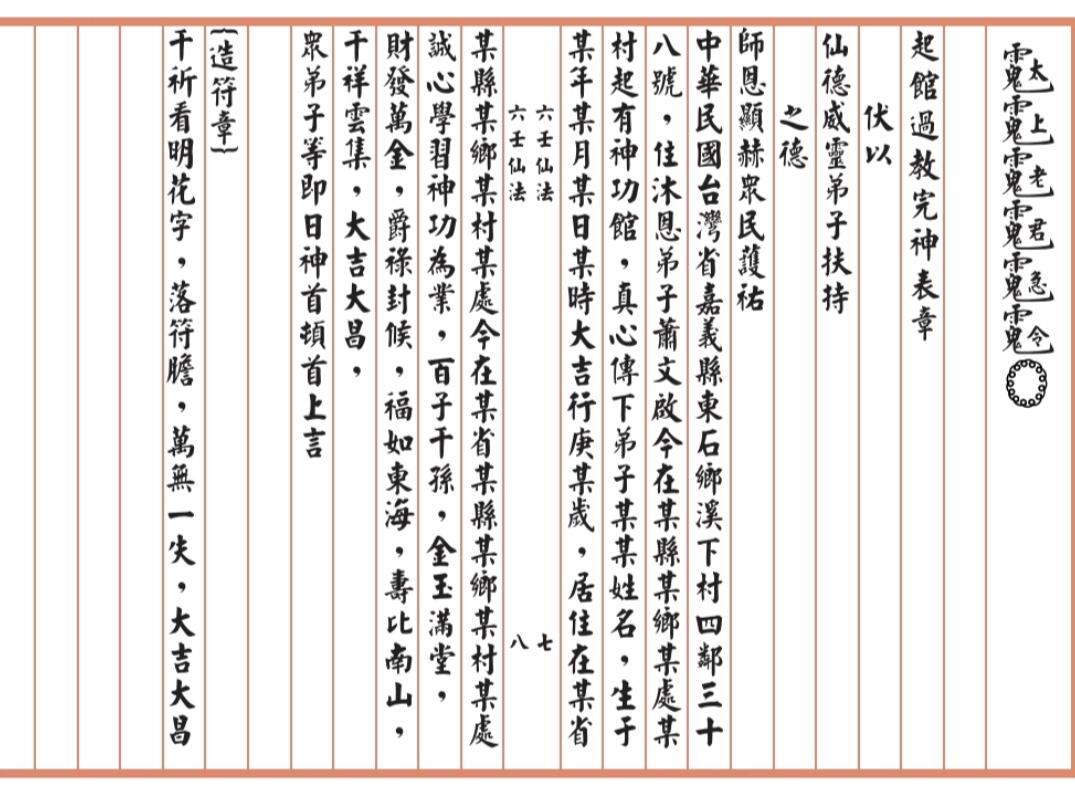 太上老君急令
起館過教完神表章
伏以
仙德威靈弟子扶持
之德
師恩顯赫眾民護祐
中華民國台灣省嘉義縣東石鄉溪下村四鄰三十
八號，住沐恩弟子蕭文啟今在某縣某鄉某處某
村起有神功館，真心傳下弟子某某姓名，生于
某年某月某日某時大吉行庚某歲，居住在某省
六壬仙法 七
六壬仙法 八
某縣某鄉某村某處今在某省某縣某鄉某村某處
誠心學習神功為業，百子千孫，金玉滿堂，
財發萬金，爵祿封候，福如東海，壽比南山，
千祥雲集，大吉大昌，
眾弟子等即日神首頓首上言
{造符章}
千祈看明花字，落符膽，萬無一失，大吉大昌